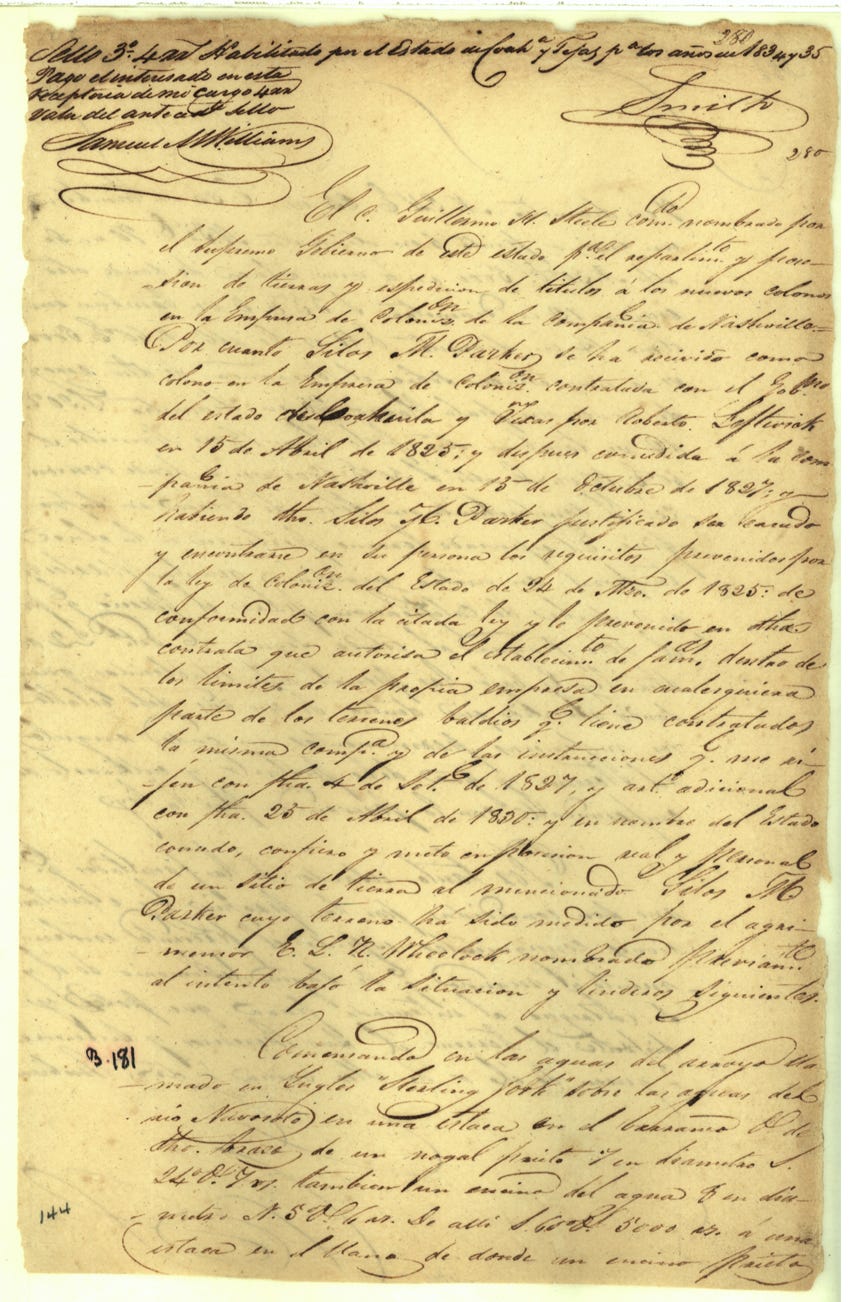 280
Sello 3º. 4 as. Habilitado por el Estado de Coahª. y Tejas pª. los años de 1834 y 35
Pago el interesado en esta
receptoria de mi cargo 4 as
Vala del ante Sello
Samuel M Williams
Smith
280
El C. Guillermo H. Steele com.do nombrado por
el Supremo Gobierno de este estado pª. el repartim.to y pose-
-sion de tierras y espedicion de titulos á los nuevos colonos
en la Empresa de Coloniz.on de la Compañia de Nashville=
Por cuanto Silas M. Parker se há recivido como
colono en la Empresa de Coloniz.on contratada con el Gob.no
del estado de Coahuila y Texas por Roberto Leftwick
en 15 de Abril de 1825; y despues concedida á la com
-pañia de Nashville en 15 de Octubre de 1827; y
habiendo dho. Silas M. Parker justificado ser casado
y encontrarse en su persona los requisitos prevenidos por
la ley de Coloniz.on del Estado de 24 de Mzo. de 1825: de
conformidad con la citada ley y lo prevenido en dha.
contrata que autorisa el establecim.to de fam.as dentro de
los limites de la propia empresa en cualesquiera
parte de los terrenos baldios q.e tiene contratados
la misma comp.a y de las instrucciones q. me ri-
-jen con fha. 4 de Set.e de 1827, y art.o adicional
con fha. 25 de Abril de 1830: y en nombre del Estado
concedo, confiero y meto en posesion real y personal
de un Sitio de tierra al mencionado Silas M
Parker cuyo terreno há sido medido por el agri-
-mensor E. L. R. Wheelock nombrado previam.te
al intento bajo la situacion y linderos siguientes.
B. 181
Comensando en las aguas del arroyo lla
-mado en Ingles "Sterling fork" sobre las aguas del
rio Navosoto en una estaca en el barranco O. de
dho. brazo, de un nogal prieto 7 en diametro S.
24º O. 7 vs. tambien un encino del agua 8 en dia-
-metro N. 5 O. 6 vs. De alli S. 60º O. 5000 vs. á una
144
estaca en el llano de donde un encino prieto